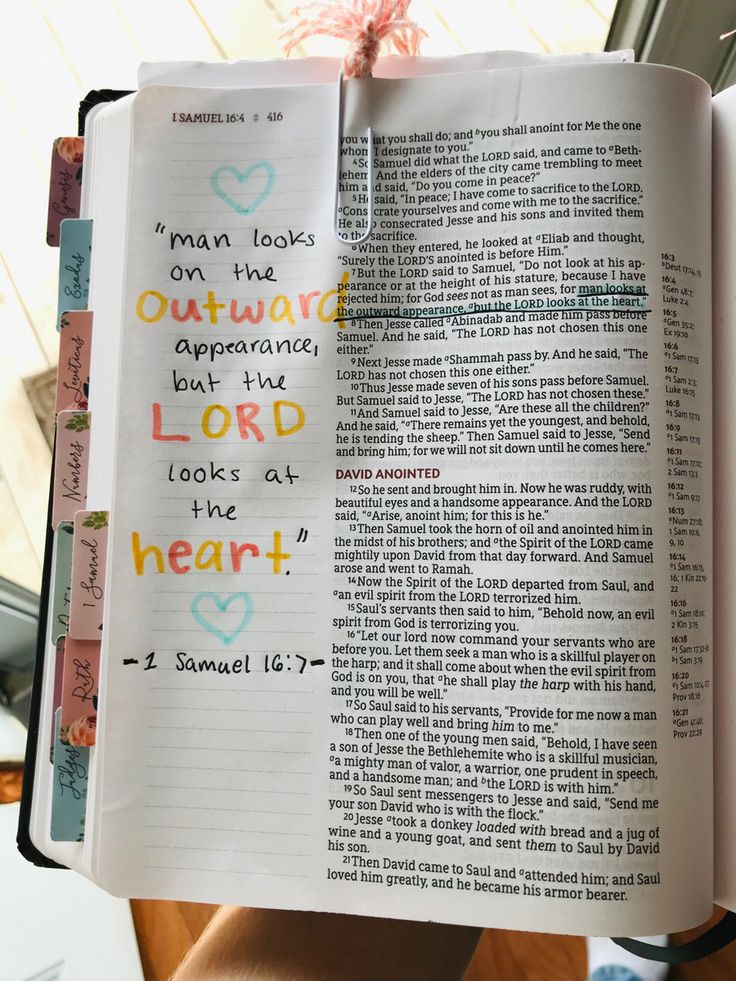 1 SAMUEL 16:4 ‡ 416
"man looks
on the
outward
appearance,
but the
LORD
looks at
the
heart."
-1 Samuel 16:7-
you what you shall do; and ᵇyou shall anoint for Me the one
whom I designate to you."
⁴So Samuel did what the LORD said, and came to ᵃBeth-
lehem. And the elders of the city came trembling to meet
him and said, "Do you come in peace?"
⁵He said, "In peace; I have come to sacrifice to the LORD.
ᵃConsecrate yourselves and come with me to the sacrifice."
He also consecrated Jesse and his sons and invited them
to the sacrifice.
⁶When they entered, he looked at ᵃEliab and thought,
"Surely the LORD's anointed is before Him."
⁷But the LORD said to Samuel, "Do not look at his ap-
pearance or at the height of his stature, because I have
rejected him; for God sees not as man sees, for man looks at
the outward appearance, ᵃbut the LORD looks at the heart."
⁸Then Jesse called ᵃAbinadab and made him pass before
Samuel. And he said, "The LORD has not chosen this one
either."
⁹Next Jesse made ᵃShammah pass by. And he said, "The
LORD has not chosen this one either."
¹⁰Thus Jesse made seven of his sons pass before Samuel.
But Samuel said to Jesse, "The LORD has not chosen these."
¹¹And Samuel said to Jesse, "Are these all the children?"
And he said, "ᵃThere remains yet the youngest, and behold,
he is tending the sheep." Then Samuel said to Jesse, "Send
and bring him; for we will not sit down until he comes here."
DAVID ANOINTED
¹²So he sent and brought him in. Now he was ruddy, with
beautiful eyes and a handsome appearance. And the LORD
said, "ᵃArise, anoint him; for this is he."
¹³Then Samuel took the horn of oil and anointed him in
the midst of his brothers; and ᵃthe Spirit of the LORD came
mightily upon David from that day forward. And Samuel
arose and went to Ramah.
¹⁴Now the Spirit of the LORD departed from Saul, and
ᵃan evil spirit from the LORD terrorized him.
¹⁵Saul's servants then said to him, "Behold now, an evil
spirit from God is terrorizing you.
¹⁶"Let our lord now command your servants who are
before you. Let them seek a man who is a skillful player on
the harp; and it shall come about when the evil spirit from
God is on you, that ᵃhe shall play the harp with his hand,
and you will be well."
¹⁷So Saul said to his servants, "Provide for me now a man
who can play well and bring him to me."
¹⁸Then one of the young men said, "Behold, I have seen
a son of Jesse the Bethlehemite who is a skillful musician,
ᵃa mighty man of valor, a warrior, one prudent in speech,
and a handsome man; and ᵇthe LORD is with him."
¹⁹So Saul sent messengers to Jesse and said, "Send me
your son David who is with the flock."
²⁰Jesse ᵃtook a donkey loaded with bread and a jug of
wine and a young goat, and sent them to Saul by David
his son.
²¹Then David came to Saul and ᵃattended him; and Saul
loved him greatly, and he became his armor bearer.
16:3
ᵃDeut 17:14, 15
16:4
ᵃGen 48:7;
Luke 2:4
16:5
ᵃGen 35:2;
Ex 19:10
16:6
ᵃ1 Sam 17:13
16:7
ᵃ1 Sam 2:3;
Luke 16:15
16:8
ᵃ1 Sam 17:13
16:9
ᵃ1 Sam 17:13
16:11
ᵃ1 Sam 17:12;
2 Sam 13:3
16:12
ᵃ1 Sam 9:17
16:13
ᵃNum 27:18;
1 Sam 10:6,
9, 10
16:14
ᵃ1 Sam 16:15,
16; 1 Kin 22:19-
22
16:16
ᵃ1 Sam 18:10;
2 Kin 3:15
16:18
ᵃ1 Sam 17:32-36
ᵇ1 Sam 3:19
16:20
ᵃ1 Sam 10:4, 27;
Prov 18:16
16:21
ᵃGen 41:46;
Prov 22:29
Genesis
Exodus
Leviticus
Numbers
1 Samuel
Ruth
Judges